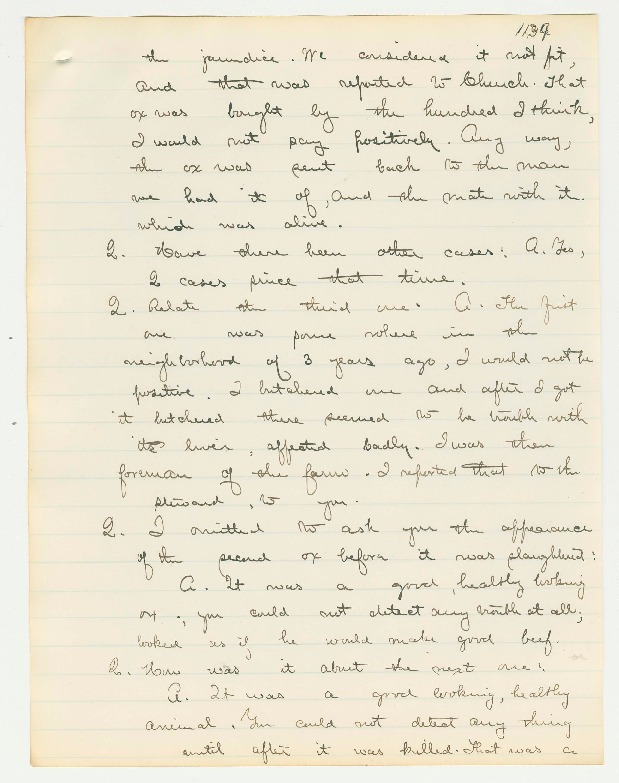 1139
the jaundice. We considered it not fit,
and that was reported to Church. That
ox was bought by the hundred I think,
I would not say positively. Any way,
the ox was sent back to the man
we had it of, and the mate with it
which was alive.
Q. Have there been other cases? A. Yes,
2 cases since that time.
Q. Relate the third one. A. The first
one was some where in the
neighborhood of 3 years ago, I would not be
positive. I butchered one and after I got
it butchered there seemed to be trouble with
its liver, affected badly. I was then
foreman of the farm. I reported that to the
steward, to you.
Q. I omitted to ask you the appearance
of the second ox before it was slaughtered?
A. It was a good, healthy looking
ox; you could not detect any trouble at all;
looked as if he would make good beef.
Q. How was it about the next one?
A. It was a good looking, healthy
animal. You could not detect any thing
until after it was killed. That was a